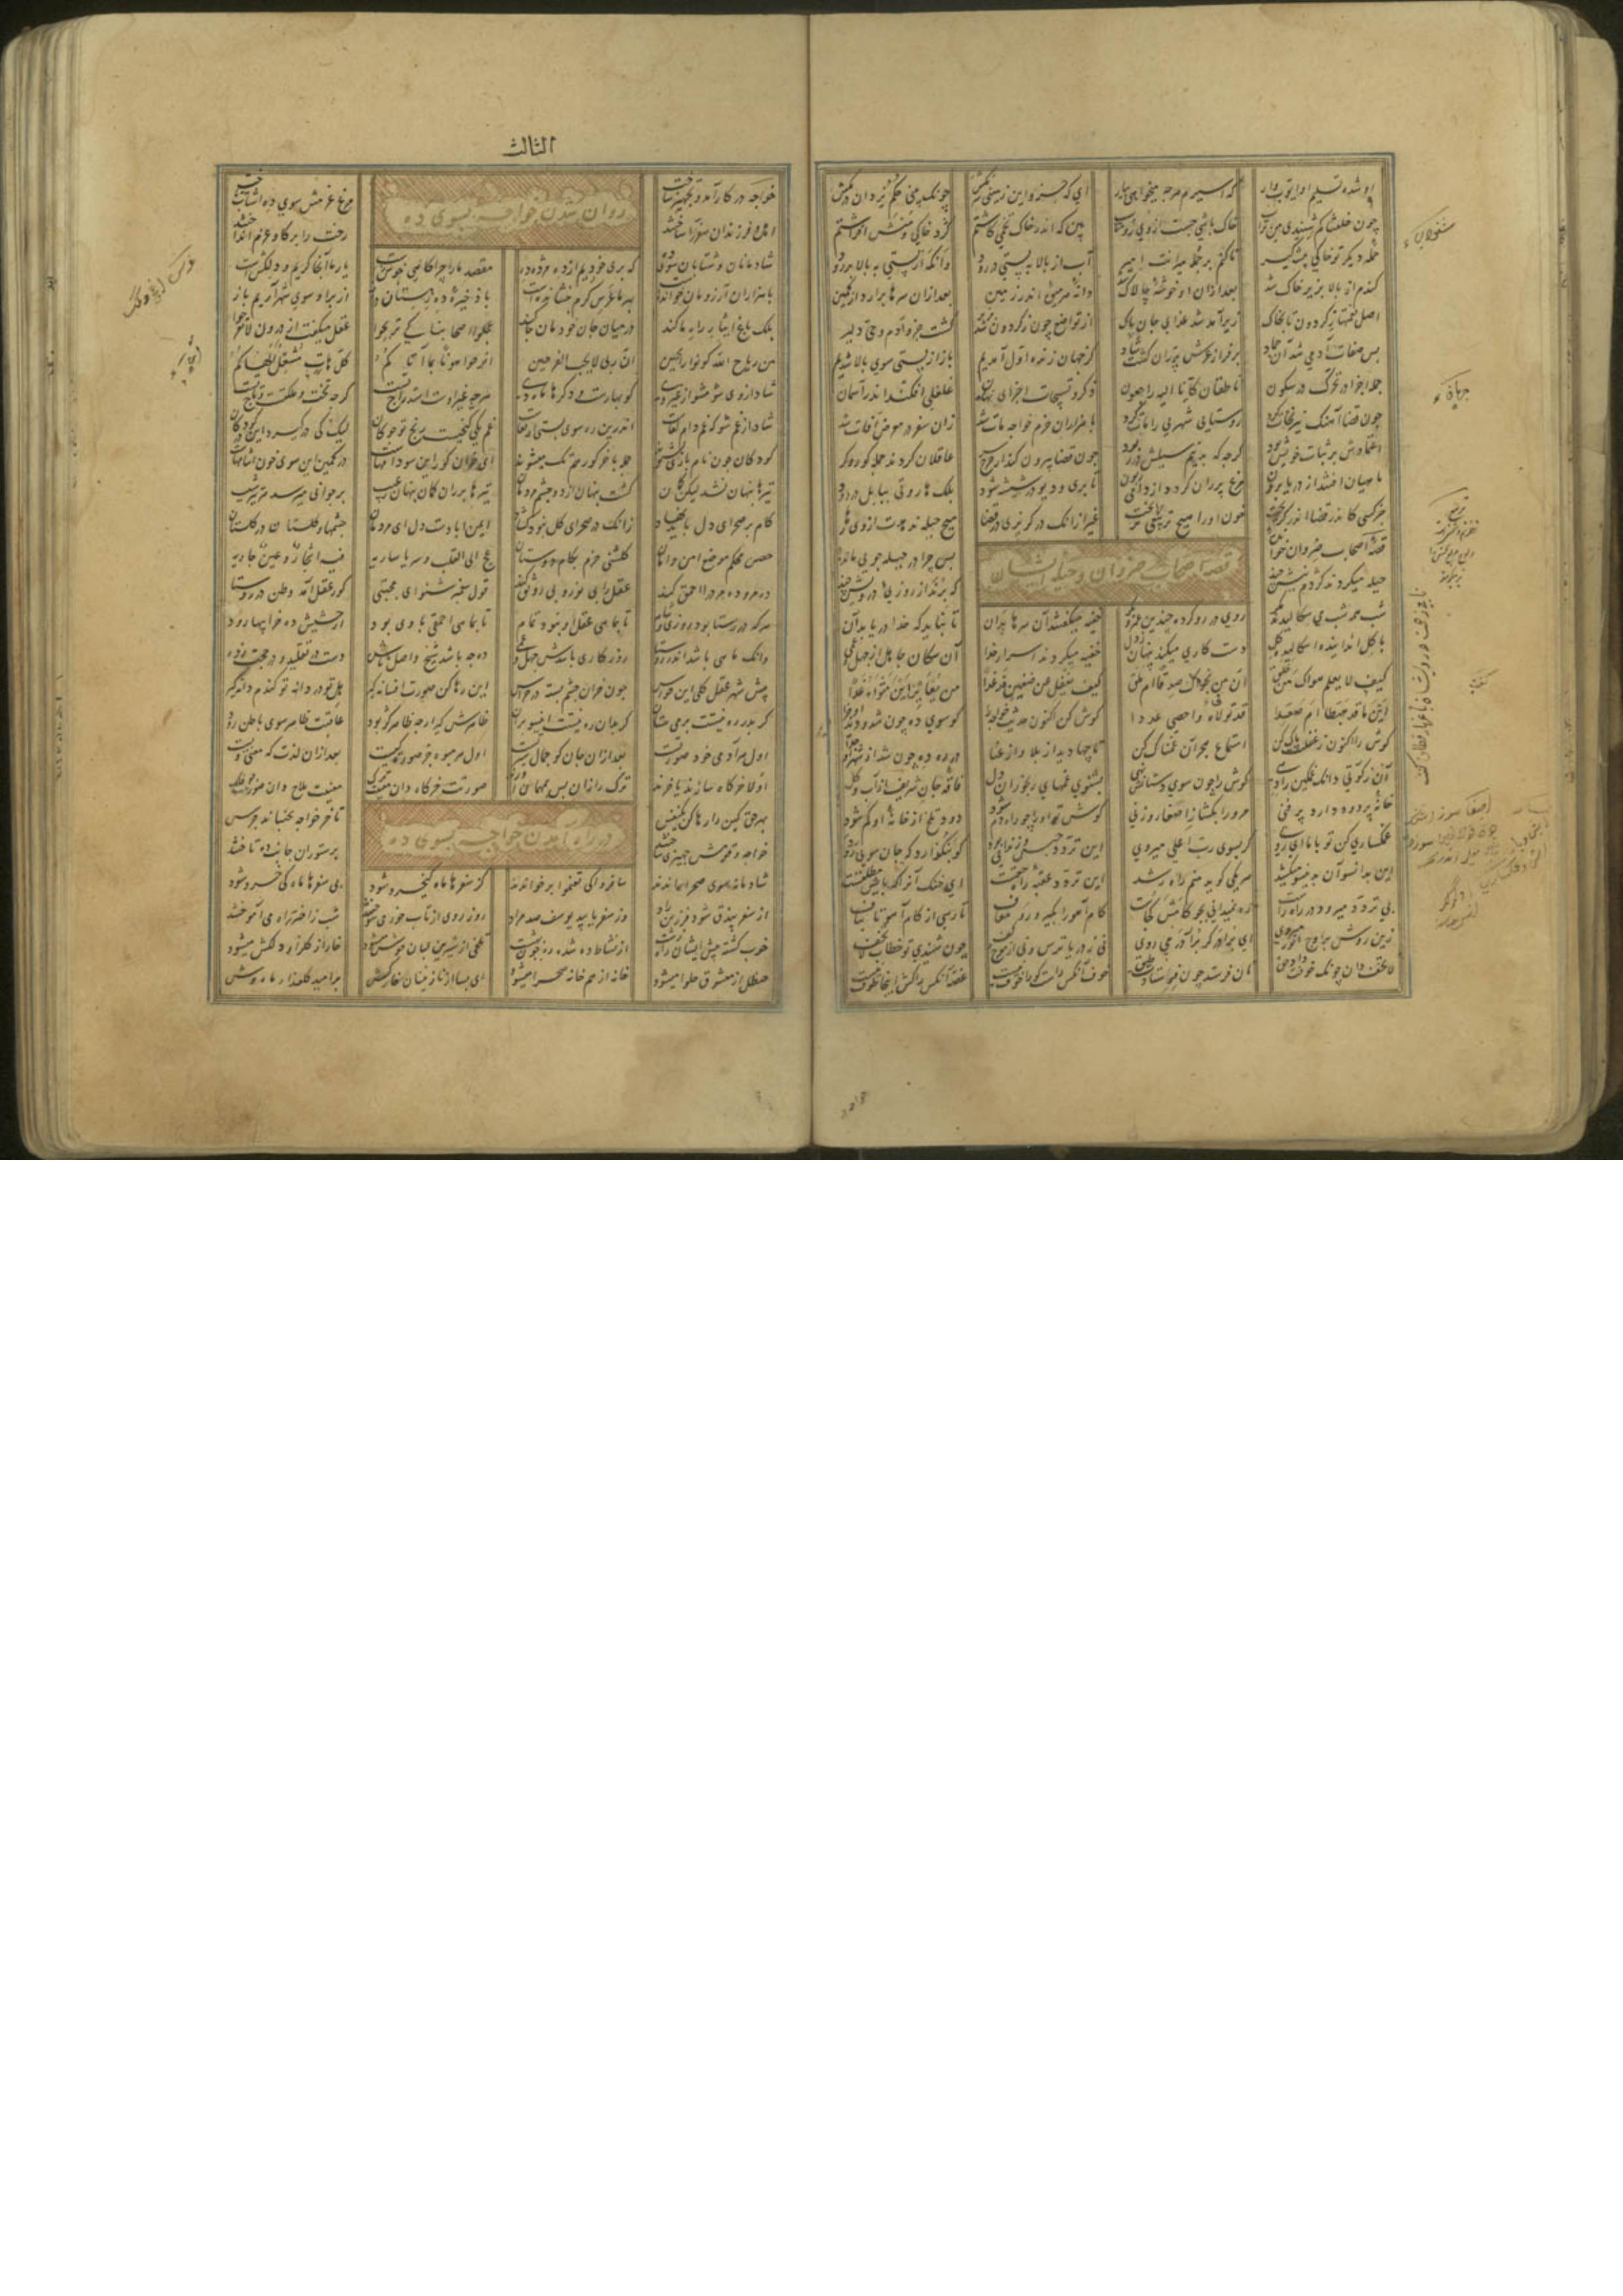 او شده تسلیم او ایوب وار که اسیرم هرچه میخواهی بیار ای که جزو این زمینی سر مکش چونک بینی حکم یزدان در مکش
چون خلقناکم شنیدی من تراب خاک باشی جست از وی رو متاب بین که اندر خاک تخمی کاشتم گرد خاکی و منش افراشتم
حمله دیگر تو خاکی پیشه گیر تا کنم بر جمله میرانت امیر آب از بالا به پستی در رود وانگه از پستی به بالا بر رود
گندم از بالا بزیر خاک شد بعد ازان او خوشه چالاک شد دانه هر میوه اندر زمین بعد ازان سرها برارد از کمین
اصل نعمتها ز گردون تا بخاک زیر آمد شد غذای جان پاک از تواضع چون ز گردون شد گشت جزو آدم و حی دلیر
بس صفات آدمی شد آن جماد بر فراز عرش پران گشت شاد کز جهان زنده اول آمدیم باز از پستی سوی بالا شدیم
جمله اجزا در تحرک در سکون ناطقان کانا الیه راجعون ذکر و تسبیحات اجزای نهان غلغلی افکند اندر آسمان
چون قضا آهنگ نیرنجات کرد روستایی شهری را مات کرد با هزاران حزم خواجه مات شد زان سفر در معرض آفات شد
اعتمادش بر ثبات خویش بود گرچه که بد نیم سیلش در ربود چون قضا بیرون کند از چرخ سر عاقلان گردند جمله کور و کر
ماهیان افتند از دریا برون مرغ پران گردد از دامی زبون تا پری و دیو در شیشه شود بلک هاروتی ببابل در رود
جز کسی کاندر قضا اندر گریخت خون او را هیچ تربیعی نریخت غیر ازانک در گریزی در قضا هیچ حیله ندهدت از وی رها
قصه اصحاب ضروان و حیله ایشان
قصه اصحاب ضروان خوانده بس چرا در حیله جویی مانده
حیله میکردند کژدم نیش چند که برند از روزی درویش چند
شب همه شب می سکالیدند مکر روی در رو کرده چندین عمرو و بکر خفیه میگفتند آن سرها بدان تا نباید که خدا دریابد آن
با گل انداینده اسکالید گل دست کاری میکند پنهان ز دل خفیه میکردند اسرار خدا آن سکان جاهل از جهل و عمی
کیف لا یعلم هواک من خلق ان من نجواک صدقا ام ملق کیف یغفل عن ظعین قد غدا من یعاین این مثواه غدا
این ما قد هبطا ام صعدا قد تولاه و احصی عددا گوش کن اکنون حدیث خواجه را کو سوی ده چون شد و دید او جزا
گوش را اکنون ز غفلت پاک کن استماع هجر آن غمناک کن تا چها دید از بلا و از عنا در ره ده چون شد از شهر او جدا
آن زکوتی دانک غمگین را دهی گوش را چون سوی دستانش نهی بشنوی غمهای رنجوران دل فاقه جان شریف از آب و گل
خانه پر دود دارد پر فنی مر ورا بگشا ز اصغا روزنی گوش تو او را چو راه دم شود دود تلخ از خانه او کم شود
غمگساری کن تو با ما ای روی گر بسوی رب اعلی میروی این تردد حبس و زندانی بود کو بنگذارد که جان سویی رود
این بدانسو آن بدینسو میکشد هر یکی گوید منم راه رشد این تردد عقبه راه حقست ای خنک آنرا که پایش مطلقست
بی تردد میرود در راه راست ره نمیدانی بجو گامش کجاست گام آهو را بگیر و رو معاف تا رسی از گام آهو تا بناف
زین روش بر اوج انور میروی ای برادر گر بر آذر میروی نی ز دریا ترس و نی از موج و کف چون شنیدی تو خطاب لا تخف
لا تخف دان چونک خوفت داد حق نان فرستد چون فرستادت طبق خوف آنکس راست کورا خوف نیست غصه آنکس را کش اینجا طوف نیست
الثالث
روان شدن خواجه بسوی ده
خواجه در کار آمد و تجهیز ساخت مرغ عزمش سوی ده اشتاب تاخت
اهل و فرزندان سفر را ساختند رخت را بر گاو عزم انداختند
شادمانان و شتابان سوی ده که بری خوردیم از ده مژده ده مقصد ما را چراگاهی خوش است یار ما آنجا کریم و دلکش است
با هزاران آرزومان خوانده است بهر ما غرس کرم بنشانده است با ذخیره ده زمستان دراز از بر او سوی شهر آریم باز
بلک باغ ایثار راه ما کند در میان جان خودمان جا کند عجلوا اصحابنا کی تربحوا عقل میگفت از درون لا تفرحوا
من رباح الله کونوا رابحین ان ربی لا یحب الفرحین افرحوا هونا بما آتاکم کل آت مشغل الهاکم
شاد از وی شو مشو از غیر وی کو بهارست و دگرها ماه دی هرچه غیر اوست استدراج تست گرچه تخت و ملکت و تاج تست
شاد از غم شو که غم دام لقاست اندرین ره سوی پستی ارتقاست غم یکی گنجیست رنج تو چو کان لیک کی در گیرد این در کودکان
کودکان چون نام بازی بشنوند جمله با خر گور هم تک میشوند ای خران کور این سو دامهاست در کمین این سوی خون آشامهاست
تیرها پنهان نشد لیکن کمان گشت پنهان از دو چشم مردمان تیرها پران کمان پنهان ز غیب بر جوانی میرسد صد تیر شیب
گام بر صحرای دل باید نهاد زانک در صحرای گل نبود گشاد ایمن آبادست دل ای مردمان چشمها و گلستان در گلستان
حصن محکم موضع امن و امان گلشنی خرم بکام دوستان عج الی القلب و سر یا ساریه فیه اشجار و عین جاریه
ده مرو ده مرد را احمق کند عقل را بی نور و بی رونق کند قول پیغمبر شنو ای مجتبی گور عقل آمد وطن در روستا
هرکه در رستا بود روزی و شام تا بماهی عقل او نبود تمام تا بماهی احمقی با وی بود از حشیش ده جز اینها چه درود
وانک ماهی باشد اندر روستا روزگاری باشدش جهل و عمی ده چه باشد شیخ واصل ناشده دست در تقلید و در حجت زده
پیش شهر عقل کلی این حواس چون خران چشم بسته در خراس این رها کن صورت افسانه گیر هل تو دردانه تو گندم دانه گیر
گر بدر ره نیست هین بر می ستان گر بدان ره نیستت اینسو بران ظاهرش گیر ارچه ظاهر کژ بود عاقبت ظاهر سوی باطن رود
اول هر آدمی خود صورتست بعد ازان جان کو جمال سیرتست اول هر میوه جز صورت کیست بعد ازان لذت که معنی ویست
اولا خرگاه سازند یا خرند ترک را زان بس بمهمان آورند صورتت خرگاه دان معنیت ترک معنیت ملاح دان صورت چو فلک
بهر حق این را رها کن یک نفس تا خر خواجه بجنباند جرس
در راه آمدن خواجه بسوی ده
خواجه و بچگان جهیزی ساختند بر ستوران جانب ده تاختند
شادمانه سوی صحرا راندند سافروا کی تغنموا بر خواندند کز سفرها ماه کیخسرو شود بی سفرها ماه کی خسرو شود
از سفر بیذق شود فرزین راد وز سفر یابید یوسف صد مراد روز روی از تاب خوری سوختند شب ز اختر راه می آموختند
خوب گشته پیش ایشان راه زشت از نشاط ده شده ره چون بهشت تلخی از شیرین لبان خوش میشود خار از گلزار دلکش میشود
حنظل از معشوق حلوا میشود خانه از هم خانه صحرا میشود ای بسا از نازنینان خارکش بر امید گلعذار ماه وش